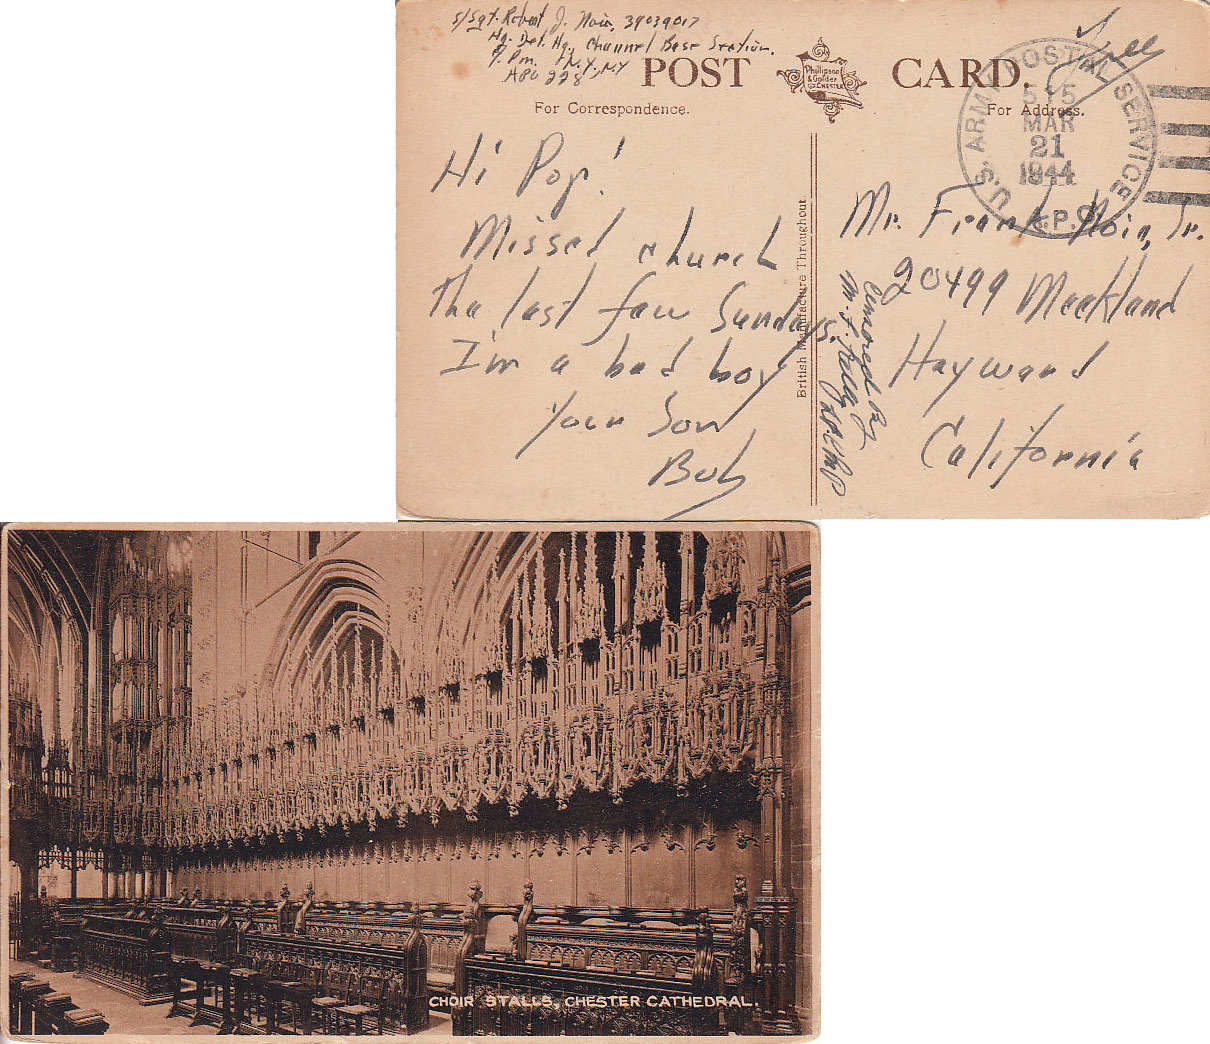 S/Sgt. Robert J. Noia, 39039017
Hq. Det. Hq., Channel Base Section.
APO 228, N.Y., N.Y
Free
POST CARD.
Phillipson
& Golder
CHESTER
For Correspondence.
For Address.
U.S. ARMY POSTAL SERVICE
515
MAR
21
1944
A.P.O.
Hi Pop!
Missed church
the last few Sundays.
I'm a bad boy
Your Son
Bob
British Manufacture Throughout.
Censored By
Mr. Frank Noia, Sr.
20499 Meekland
Hayward
California
CHOIR STALLS, CHESTER CATHEDRAL.